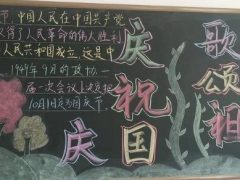 节,中国人民在中国共产党
取得了人民革命的伟大胜利
人民共和国成立,这是中
1949年9月的政协一
届一次会议上决定把
10月1日定为国庆节。
庆祝国庆
歌颂祖